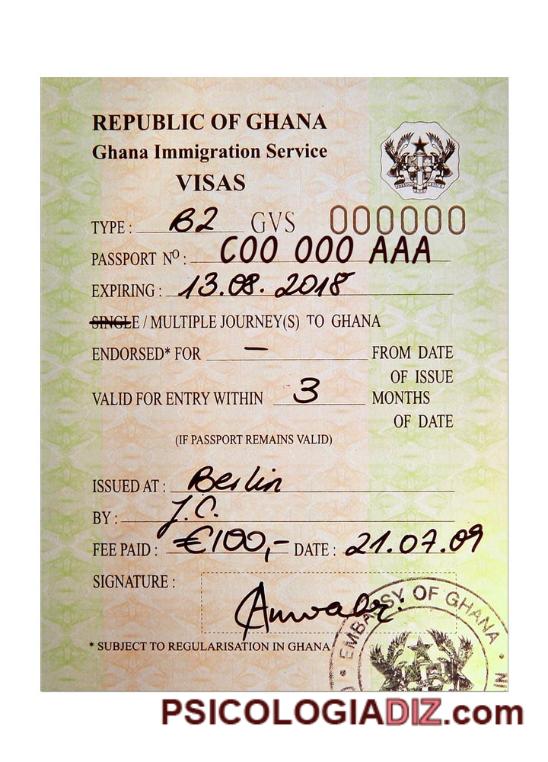 REPUBLIC OF GHANA
Ghana Immigration Service
VISAS
TYPE : B2 GVS 000000
PASSPORT Nº : C00 000 AAA
EXPIRING : 13.08.2018
SINGLE / MULTIPLE JOURNEY(S) TO GHANA
ENDORSED* FOR — FROM DATE
OF ISSUE
VALID FOR ENTRY WITHIN 3 MONTHS
OF DATE
(IF PASSPORT REMAINS VALID)
ISSUED AT : Berlin
BY : J.C.
FEE PAID : €100,- DATE : 21.07.09
SIGNATURE :
EMBASSY OF GHANA
* SUBJECT TO REGULARISATION IN GHANA
PSICOLOGIADIZ.com